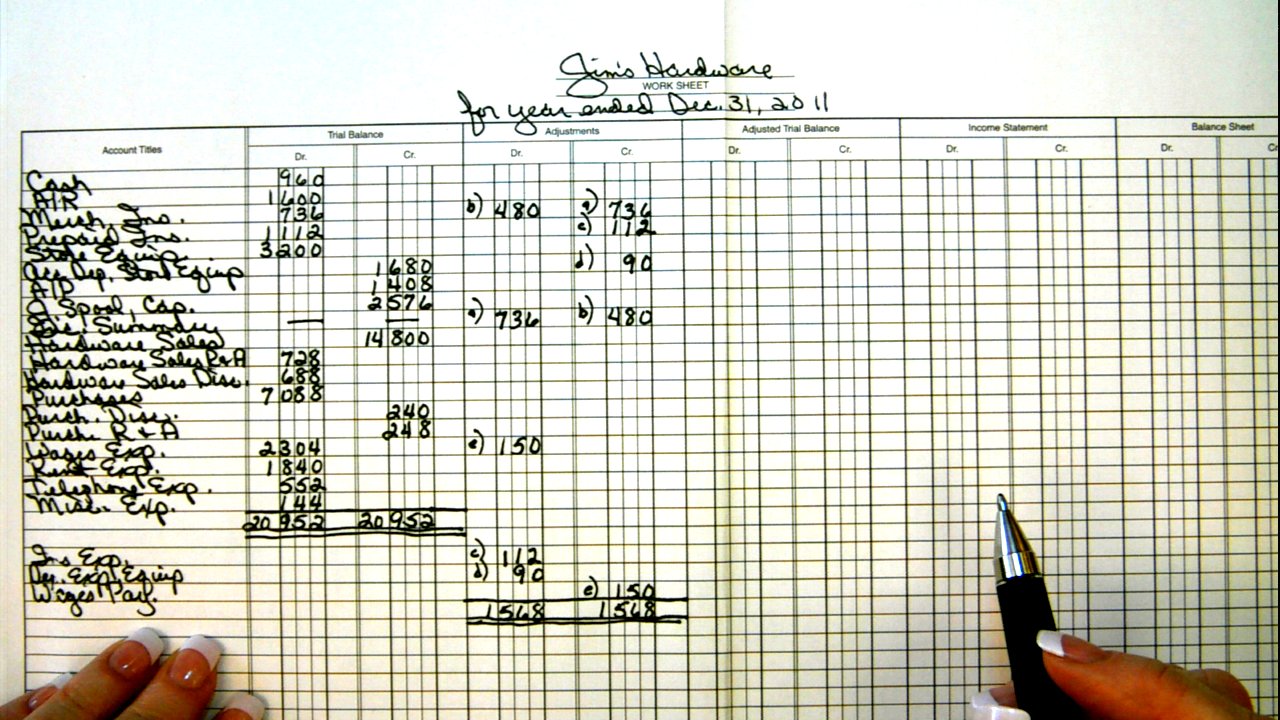 Jim's Hardware
WORK SHEET
for year ended Dec. 31, 2011
Account Titles Trial Balance Adjustments Adjusted Trial Balance Income Statement Balance Sheet
Dr. Cr. Dr. Cr. Dr. Cr. Dr. Cr. Dr. Cr
Cash 960
A/R 1600
Merch. Inv. 736 b) 480 a) 736
Prepaid Ins. 1112 c) 112
Store Equip. 3200
Acc. Dep. Store Equip 1680 d) 90
A/P 1408
J. Spool, Cap. 2576
Inc. Summary — — a) 736 b) 480
Hardware Sales 14800
Hardware Sales R+A 728
Hardware Sales Disc. 688
Purchases 7088
Purch. Disc. 240
Purch. R + A 248
Wages Exp. 2304 e) 150
Rent Exp. 1840
Telephone Exp. 552
Misc. Exp. 144
20952 20952
Ins Exp. c) 112
Dep. Exp. Equip d) 90
Wages Pay. e) 150
1568 1568